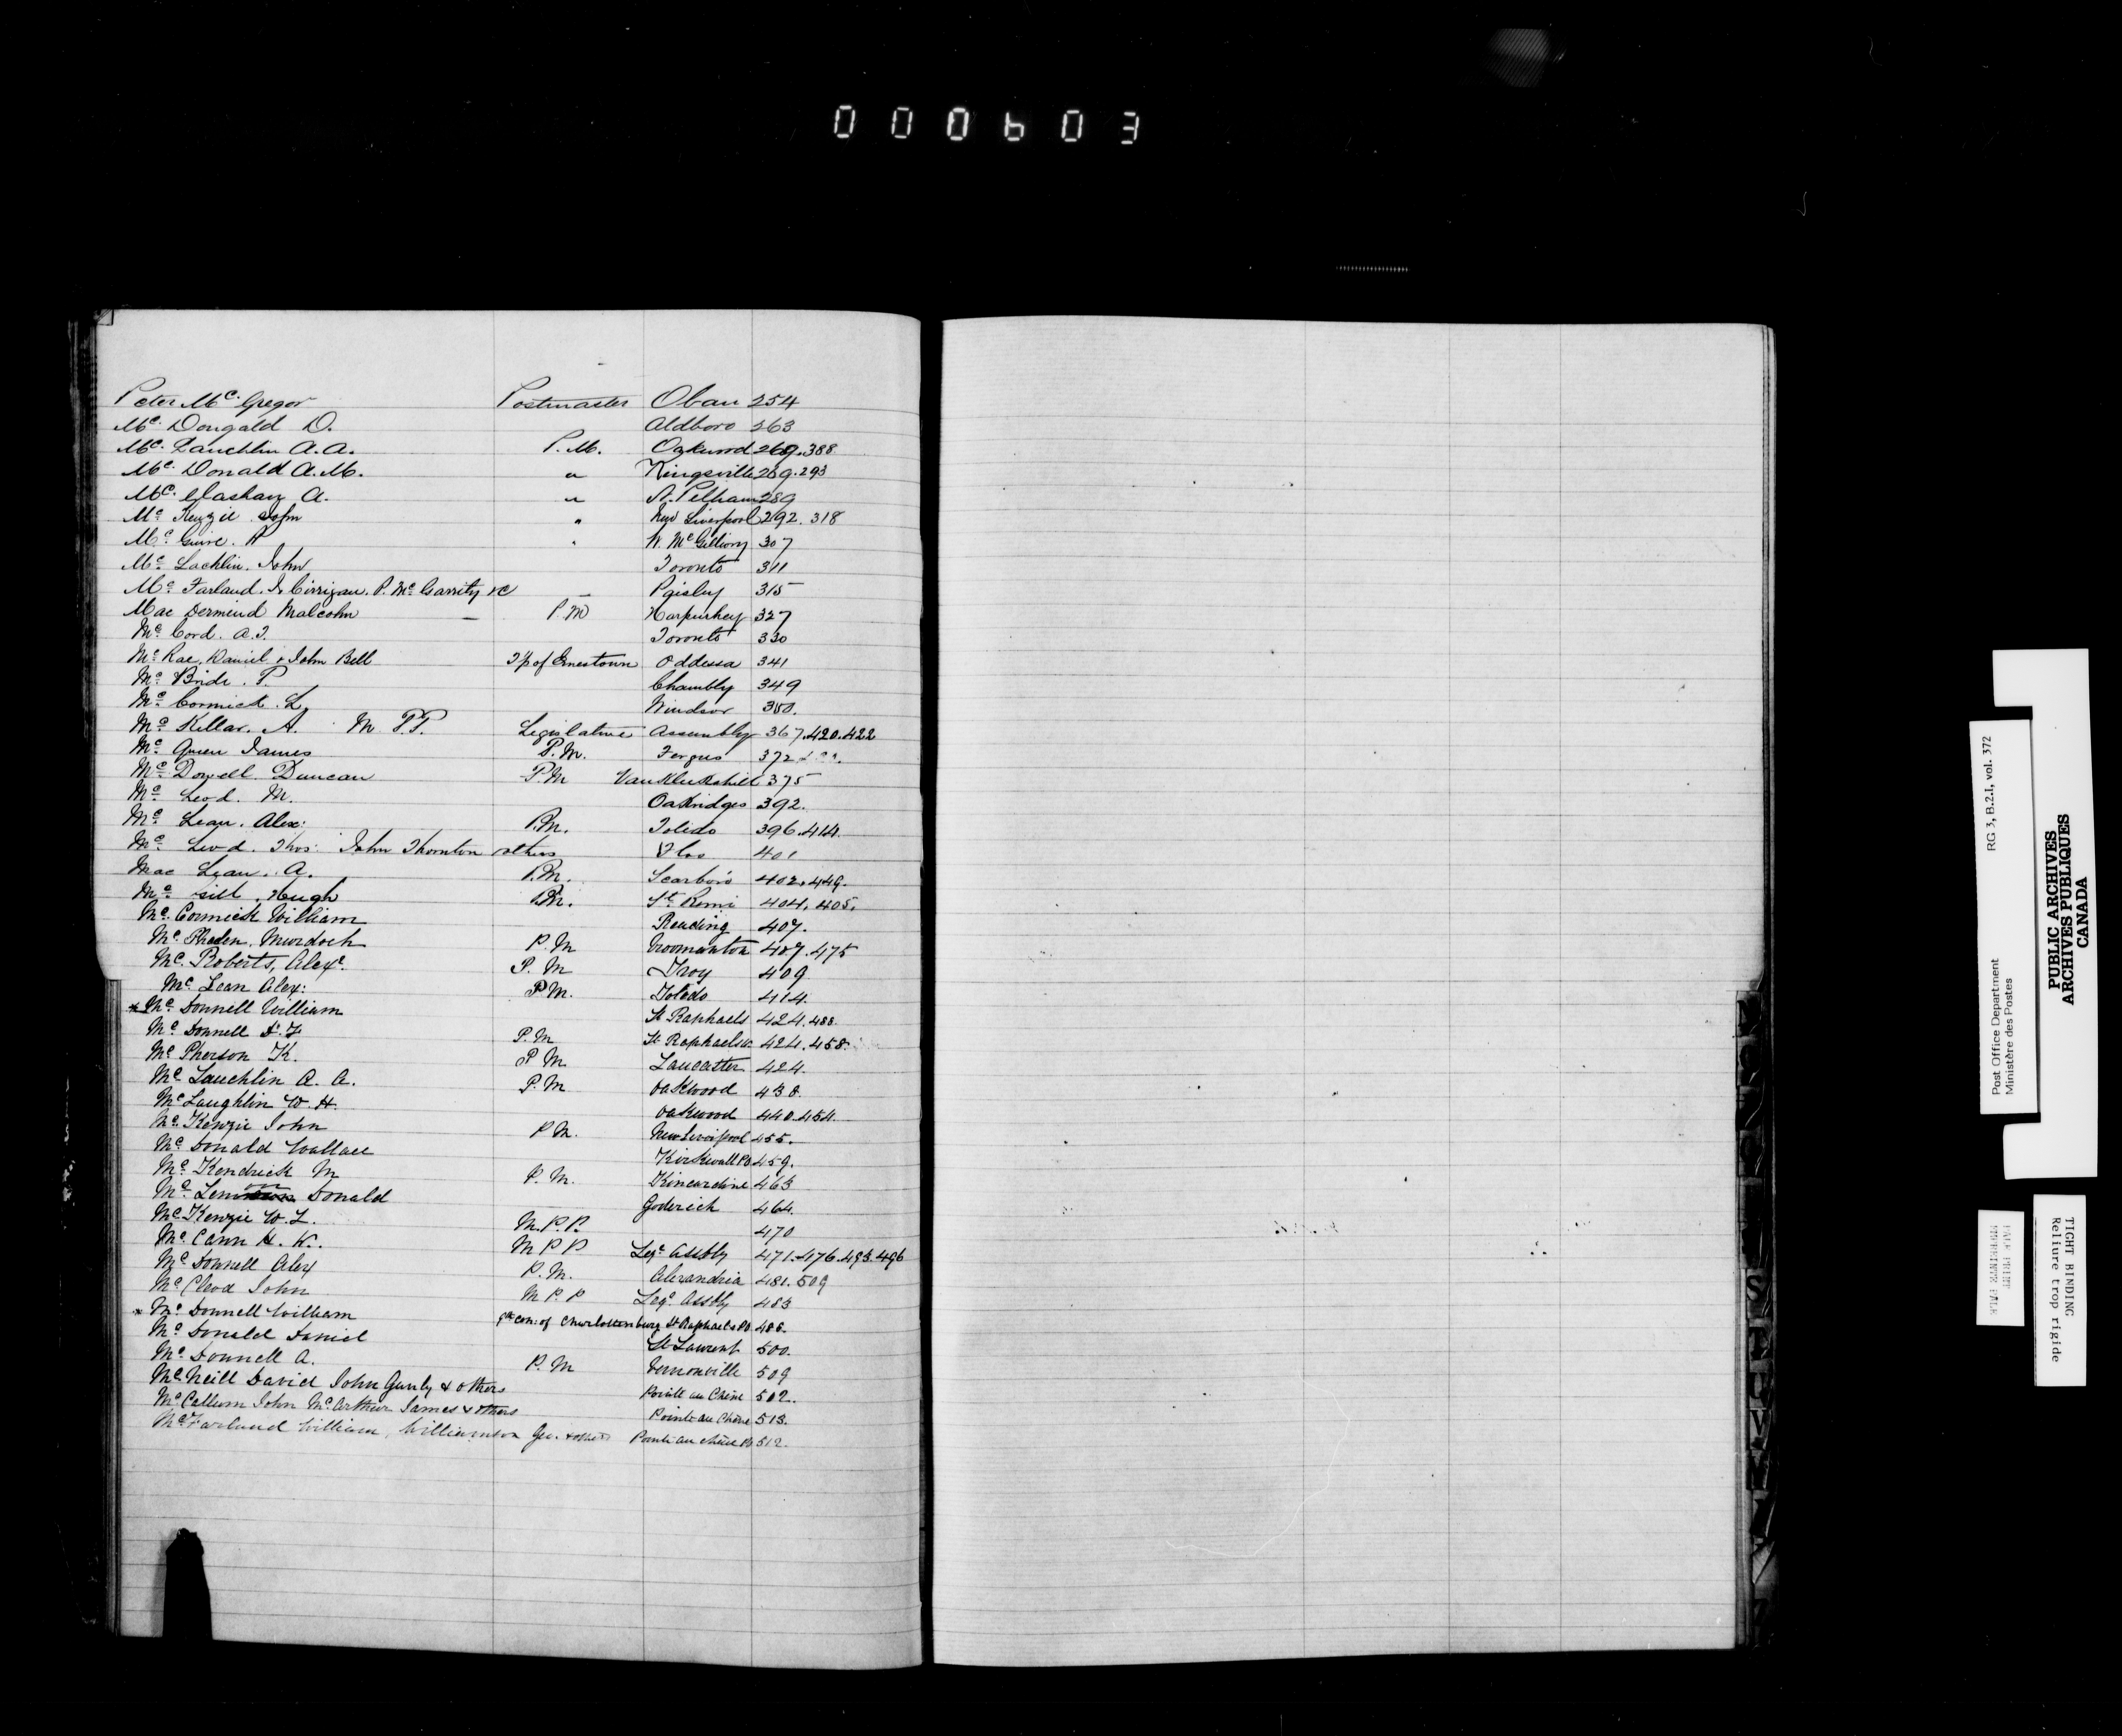 000603
Peter Mc. Gregor Postmaster Oban 254
Mc. Dongald D. Aldboro 263
Mc. Lauchlin A. A. P. M. Oakwood 269.388
Mc. Donald A. M. " Kingsville 269.293
Mc. Glashan A. " N. Pelham 289
Mc. Kenzie John " New Liverpool 292. 318
Mc. Guire. P " W. McGillivry 307
Mc. Lachlin. John Toronto 311
Mc. Farland. J. Corrigan. P. McGarrity &c — Paisley 315
Mac Dermind Malcolm — P. M Harpurhey 327
Mc. Cord. A. T. Toronto 330
Mc. Rae, Daniel & John Bell Tp of Ernestown Oddessa 341
Mc. Bride. P. Chambly 349
Mc. Cormick. L. Windsor 350.
Mc. Kellar. A. M. P.P. Legislative Assembly 367.420.422
Mc. Queen James P. M. Fergus 372
Mc. Dowell. Duncan P. M Vankleekshill 375
Mc. Leod. M. Oakridges 392.
Mc. Lean. Alex: P.M. Toledo 396.414.
Mc. Leod. Thos: John Thornton & others Flos 401
Mac Lean. A. P.M. Scarboro 402.449.
Mc. Gill. Hugh P.M. St. Remi 404. 405.
Mc. Cormick William Reading 407.
Mc. Phaden. Murdoch P. M Vroomanton 407.475
Mc. Roberts, Alexr. P. M Troy 409
Mc. Lean Alex: P M. Toledo 414.
* Mc. Donnell William St Raphaels 424.488.
Mc. Donnell D. F P. M St Raphaels W. 424.458.
Mc. Pherson K. P M. Lancaster 424.
Mc. Lauchlin A. A. P. M Oakwood 438.
Mc. Laughlin W. H. Oakwood 440.454.
Mc. Kenzie John P M. New Liverpool 455.
Mc. Donald Wallace Kirkwall PO 459.
Mc. Kendrick M P. M. Kincardine 463
Mc. Lennon Donald Goderich 464.
Mc. Kenzie W. L. M. P. P. 470
Mc. Cann H. W. M P P Lege. Assbly 471.476.493.496
Mc. Donnell Alex P. M. Alexandria 481. 509
Mc. Cleod John M P. P Lege. Assbly 483
* Mc. Donnell William 9th con: of Charlottenburg St Raphaels PO 488.
Mc. Donald Daniel St Laurent 500.
Mc. Donnell A. P. M Vernonville 509
Mc. Neill David John Gunly & others Pointe au Chêne 512.
Mc. Callum John Mc. Arthur James & others Pointe au Chêne 513.
Mc. Farlund William, Williamson Geo. & others Pointe au chêne Po 512.
Post Office Department RG 3, B.2.1, vol. 372
Ministère des Postes
PUBLIC ARCHIVES
ARCHIVES PUBLIQUES
CANADA
TIGHT BINDING
Reliure trop rigide
PALE PRINT
IMPRIMÉ PÂLE